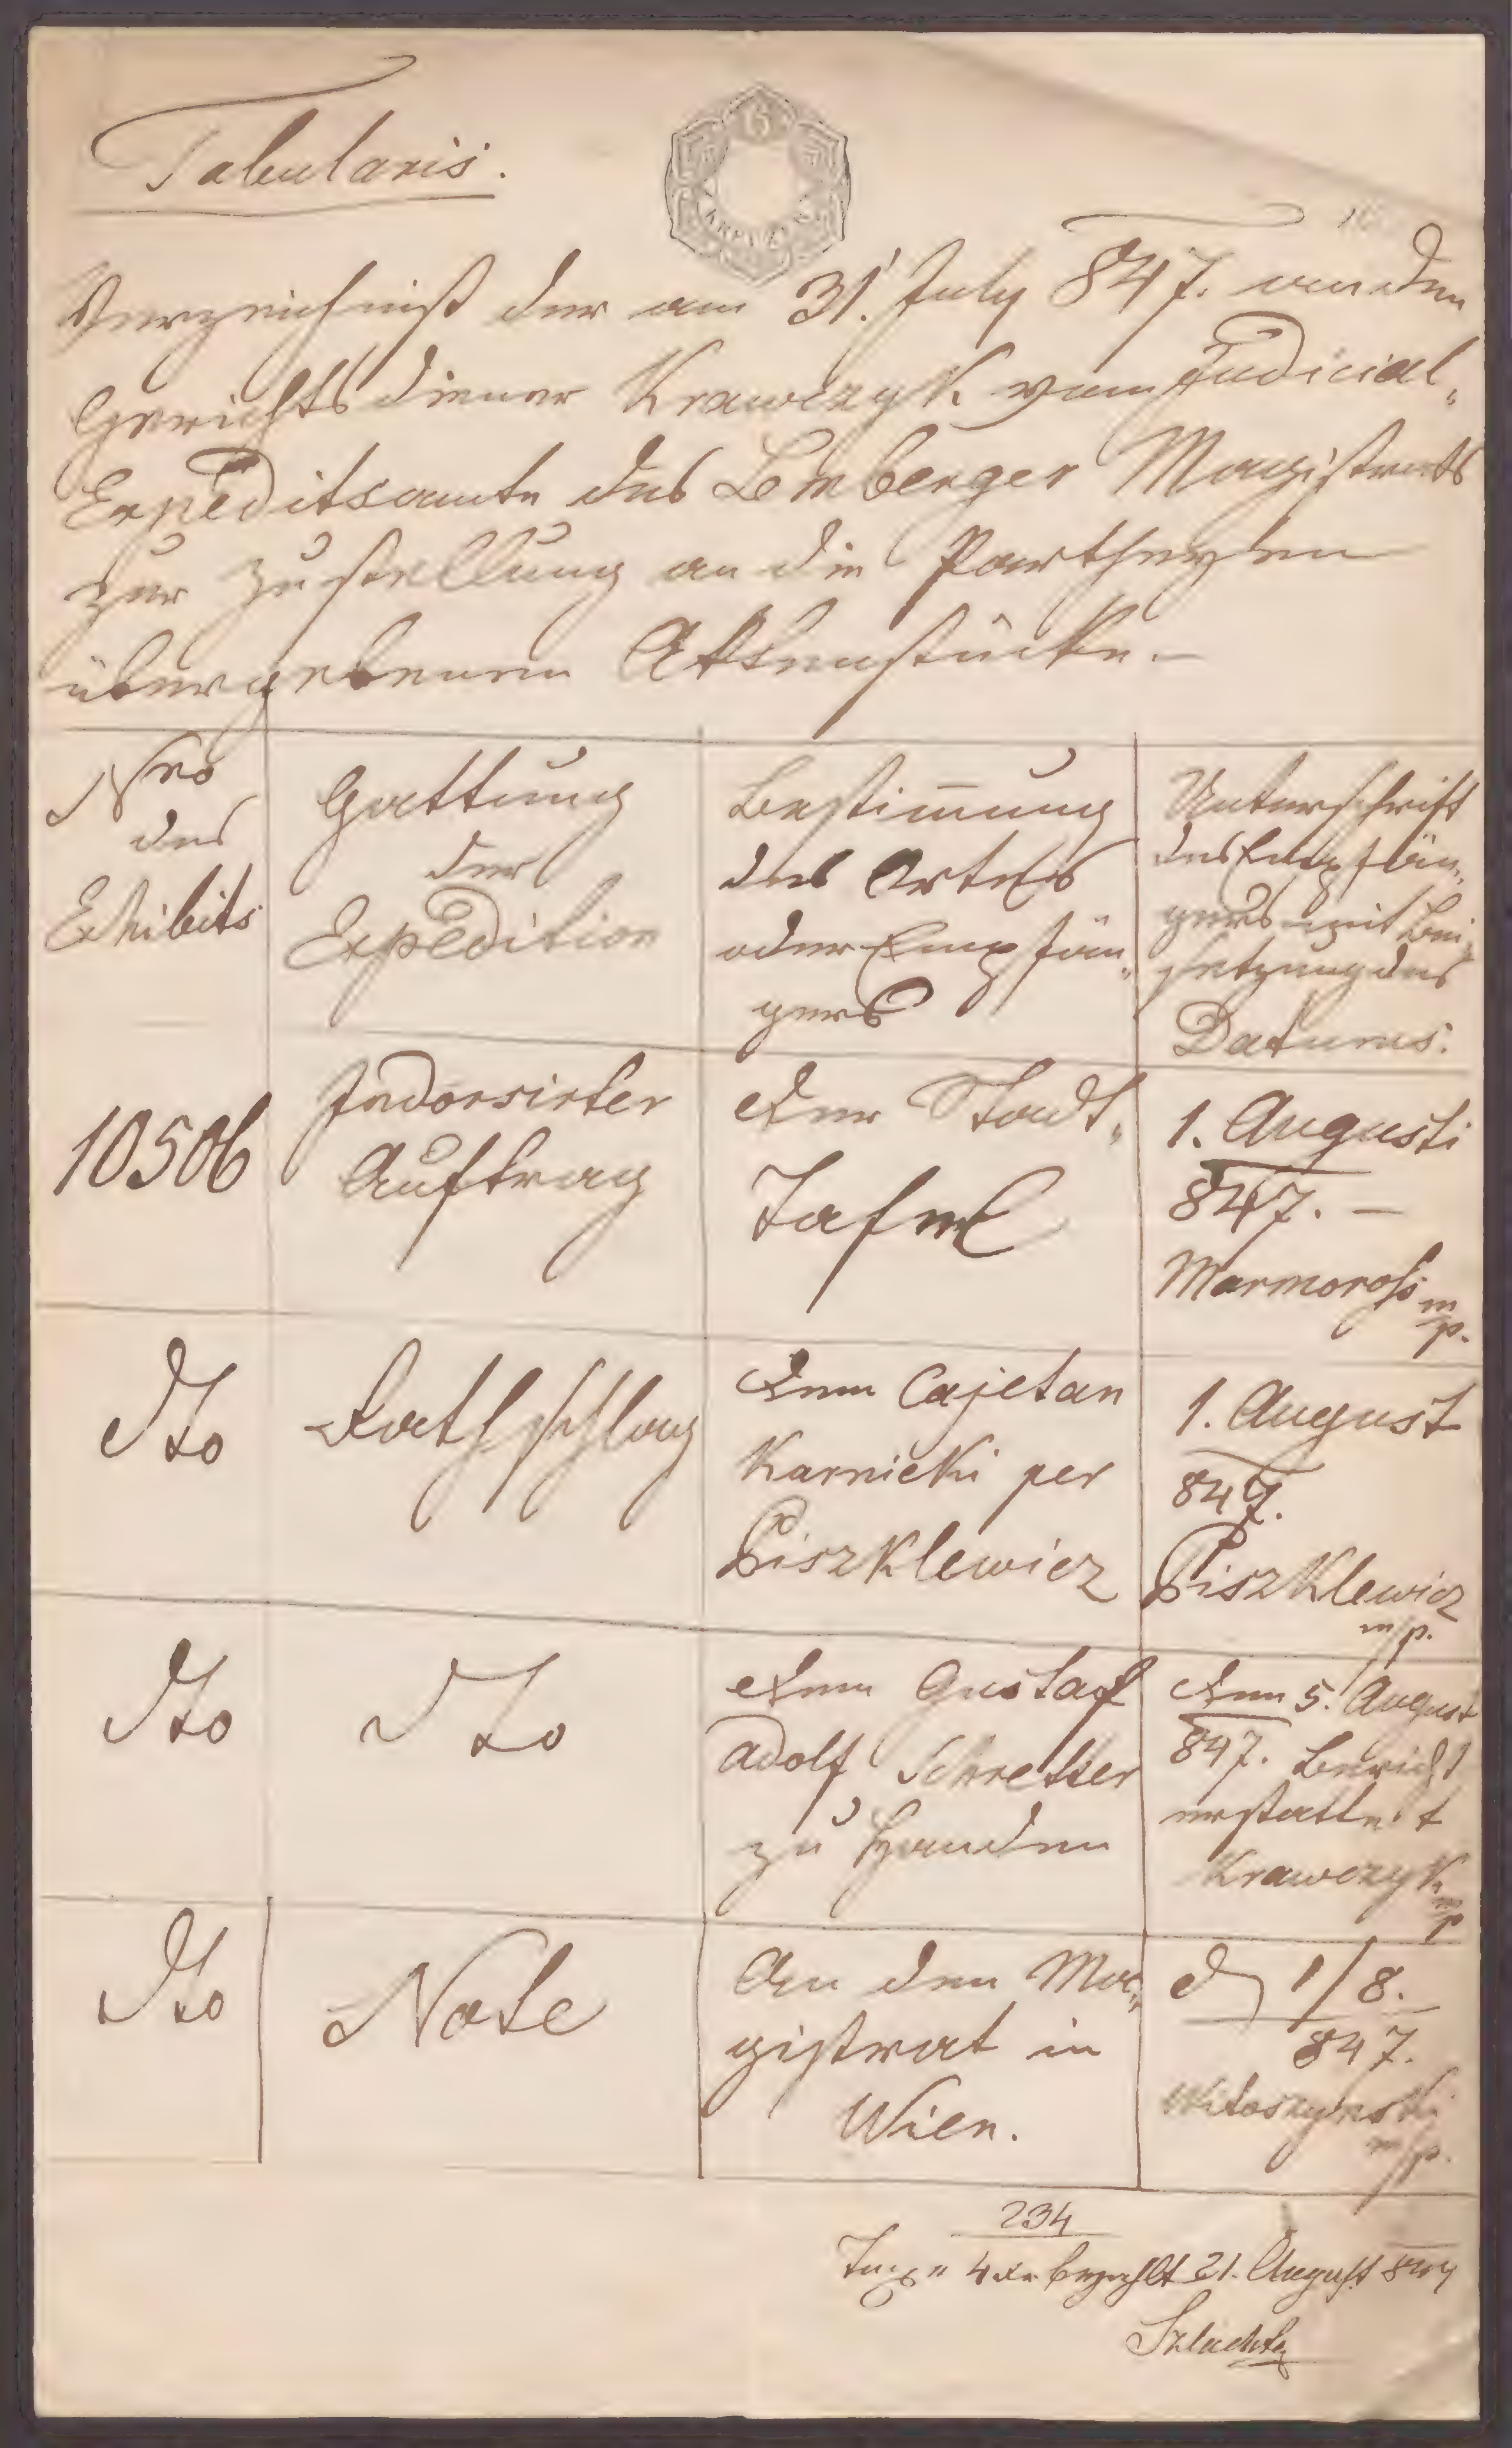 Tabularis.
6
KREUZER
Verzeichniß der am 31. July 847. an den
Gerichtsdiener Krawczyk vom Judicial-
Expeditsamte des Lemberger Magistrats
zur Zustellung an die Partheyen
übergebenen Aktenstücke.-
Nro
des
Exhibits
Gattung
der
Expedition
Bestimung
des Ortes
oder Empfän-
gers
Unterschrift
des Empfän-
gers mit Bei-
setzung des
Datums.
10506
Indorsirter
Auftrag
Der Stadt-
Tafel
1. Augusti
847. -
Marmoroß m/p.
Dto
Rathschlag
Dem Cajetan
Karnicki per
Piszklewicz
1. August
847.
Piszklewicz
m/p.
Dto
Dto
Dem Gustaf
Adolf Schretter
zu Handen
Den 5. August
847. Bericht
erstattet
Krawczyk m/p
Dto
Note
An den Ma-
gistrat in
Wien.
d 1/8.
847.
Witoszynski
m/p.
234
Tax 4 xr bezahlt 21. August 847